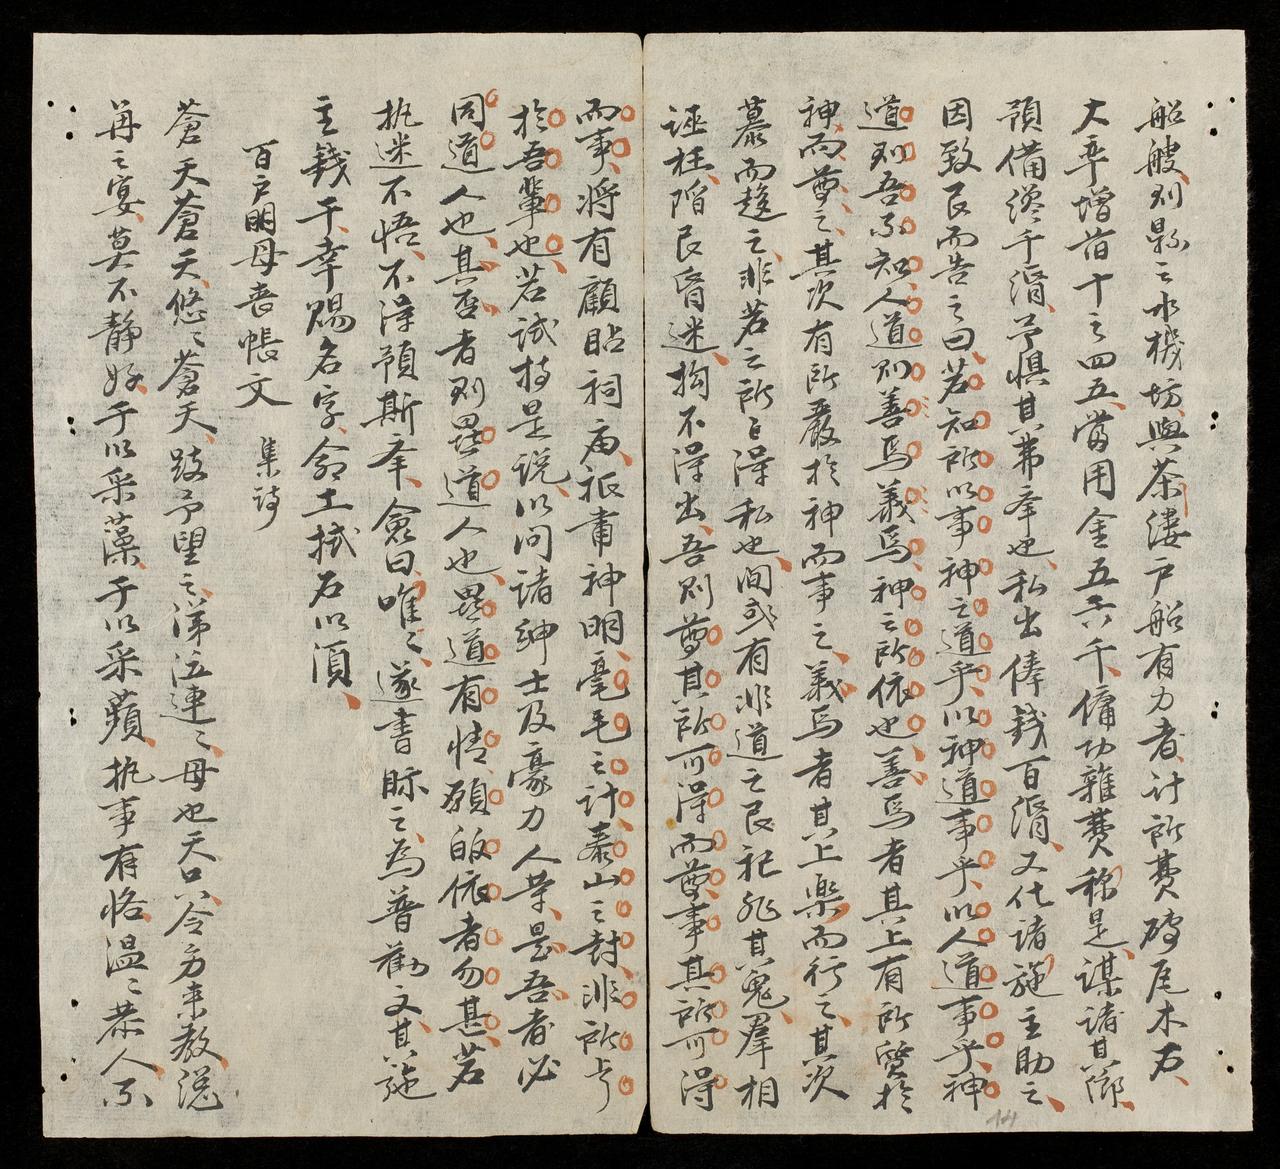 船艘則縣之水機坊與茶漊戶船有力者計所費磚瓦木石
大率增苗十之四五當用金五六千傭功雜費稱是謀諸其鄉
預備纔千湏予懼其弗奉也私出俸錢百湏又化諸施主助之
因致民而告之曰若知所以事神之道乎以神道事乎以人道事乎神
道則吾不知人道則善焉義焉神之所依也善焉者其上有所質於
神而尊之其次有所嚴於神而事之義焉者其上樂而行之其次
慕而趍之非若之所得私也间或有非道之民祀非其鬼羣相
誣枉陷民昏迷拘不得出吾則尊其所可得而尊事其所可得
而事將有顧眙祠庙祇肅神明毫毛之計泰山之封非所与
於吾輩也若試持是說以问諸紳士及豪力人等是吾者必
同道人也其否者則異道人也異道有情願皈依者勿甚若
执迷不悟不得預斯奉僉曰唯〻遂書眎之為普勸文其施
主錢干幸賜名字命土拭石以湏
百戶明母丧帳文 集詩
蒼天蒼天悠〻蒼天跂予望之涕泣連〻母也天只今方来教誨
再之宴莫不静好于以采藻于以采蘋执事有恪温〻恭人不